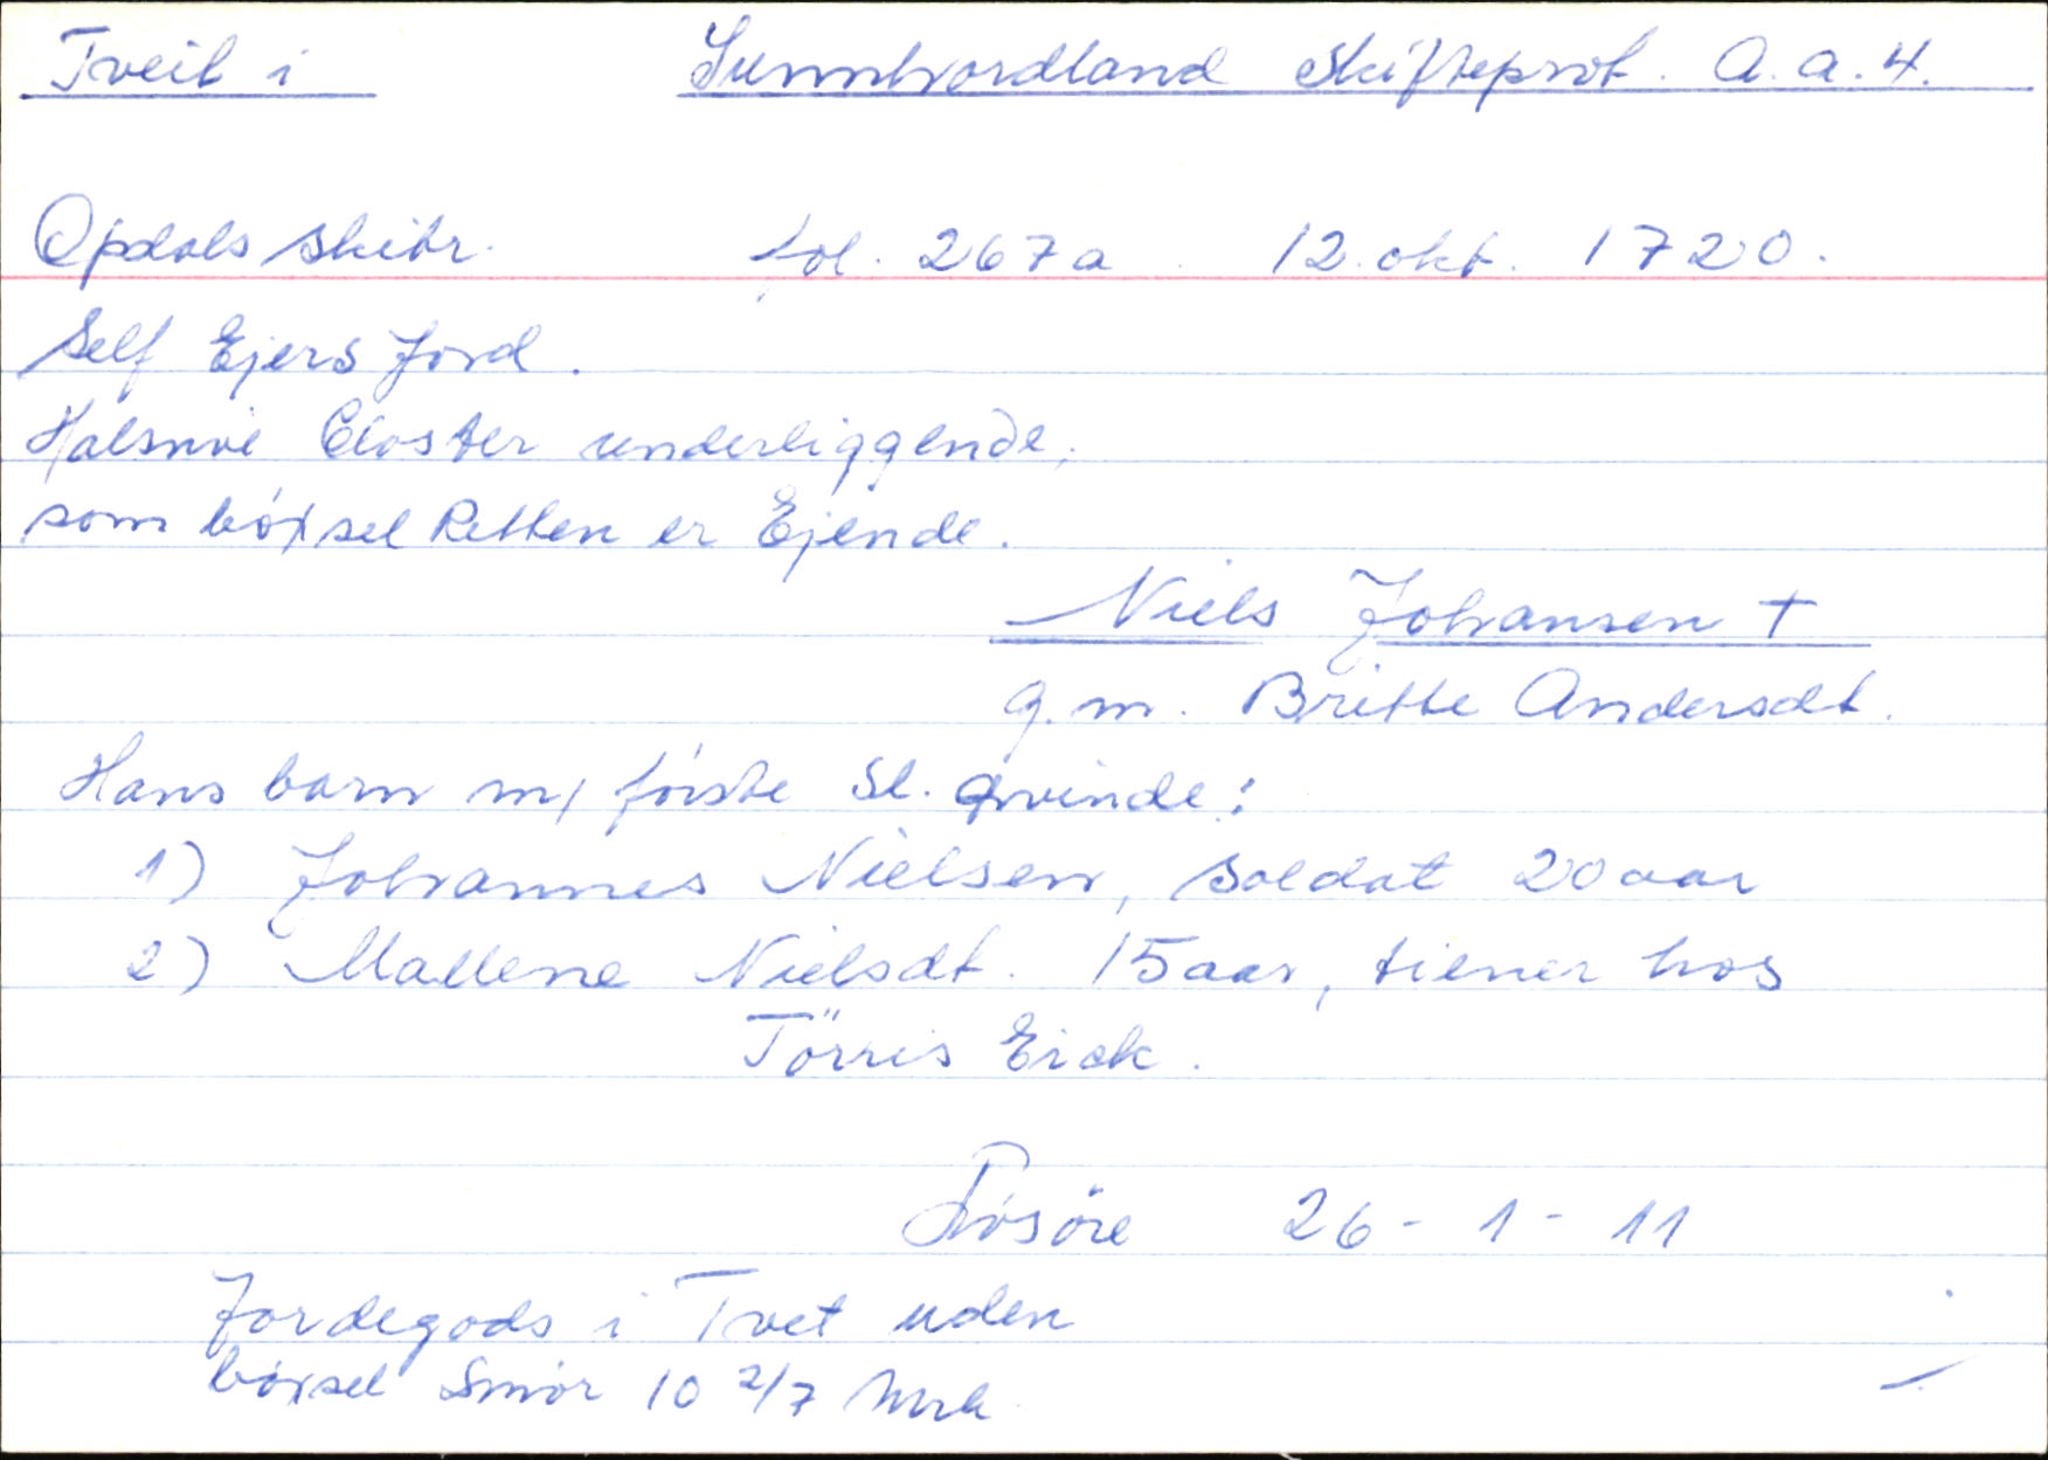 Tveit i Sunnhordland Skifteprot. A.a.4.
Opdals Skibr. fol. 267a. 12. okt. 1720.
Self Ejers Jord.
Halsnöe Closter underliggende,
som böxsel Retten er Ejende.
Niels Johansen †
g.m. Britte Andersdt.
Hans barn m/ förste Sl. Qvinde:
1) Johannes Nielsen, Soldat 20 aar
2) Mallene Nielsdt. 15 aar, tiener hos
Törris Eick.
Lösöre 26 - 1 - 11
Jordegods i Tvet uden
böxsel Smör 10 2/7 Mrk